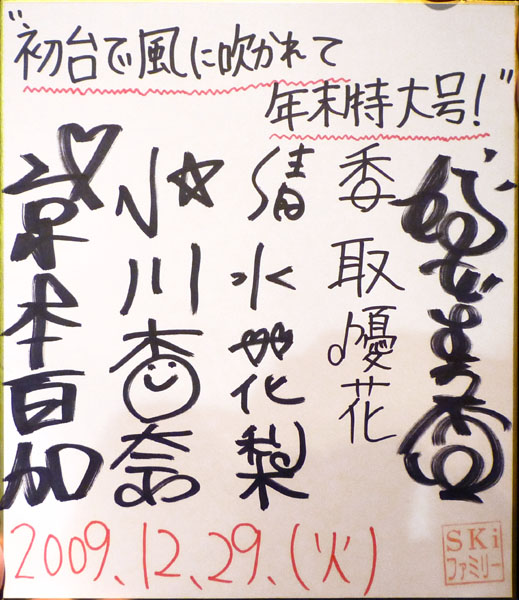 "初台で風に吹かれて
年末特大号!"
委取優花
清水花梨
小川杏奈
京本百加
2009.12.29.(火)
SKi
ファミリー